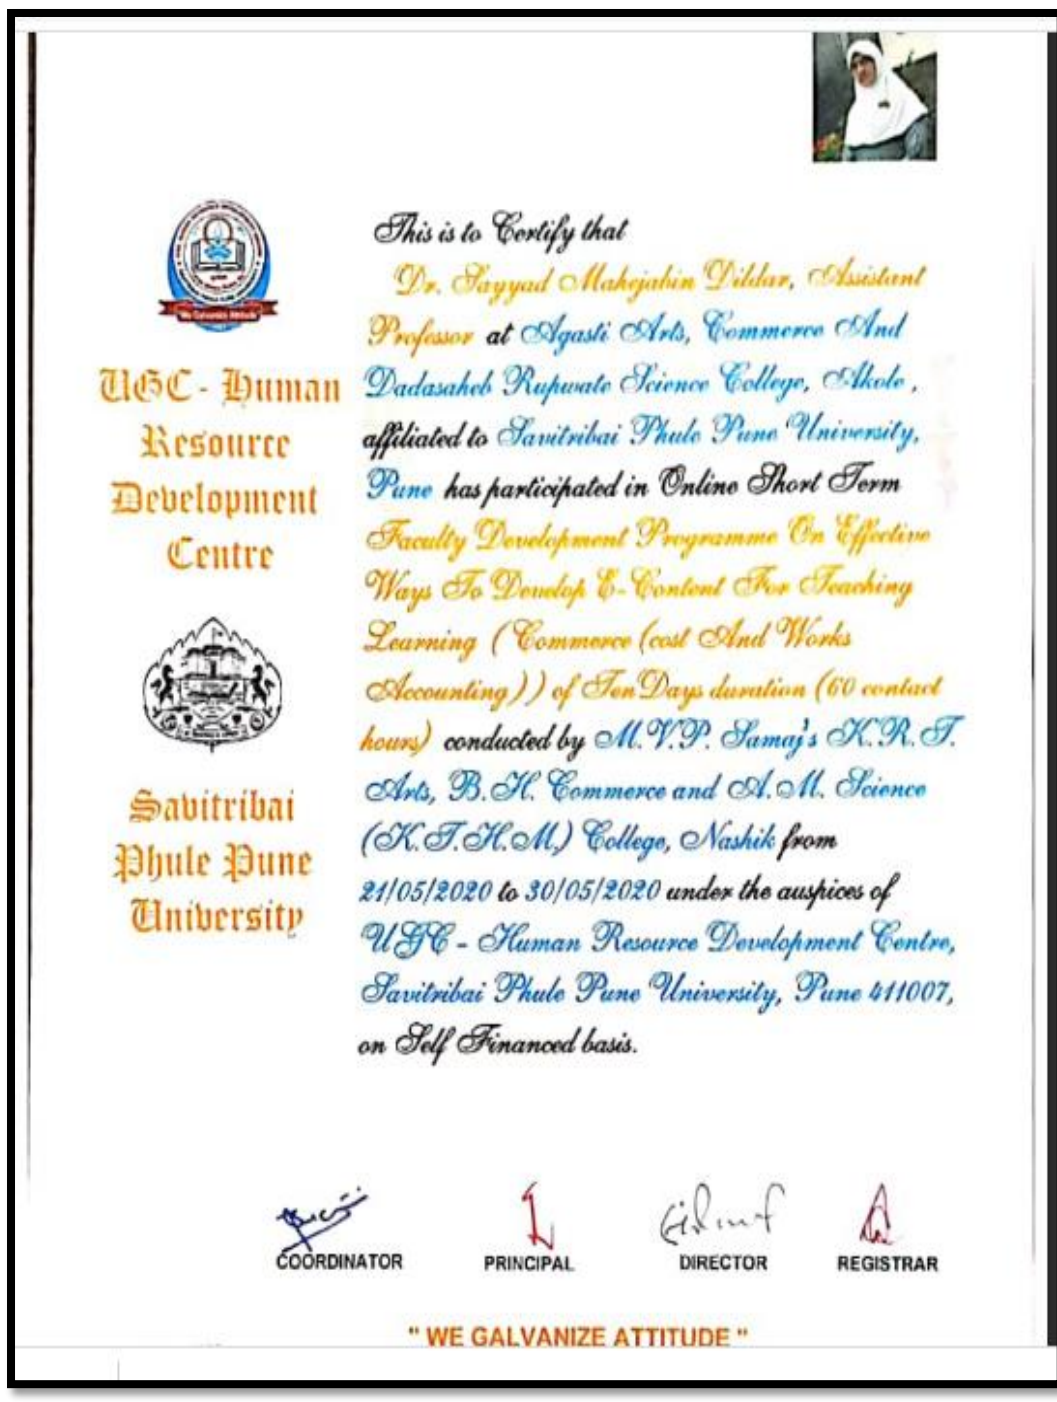 "We Galvanize Attitude"
UGC - Human
Resource
Development
Centre
Savitribai
Phule Pune
University
This is to Certify that
Dr. Sayyad Mahejabin Dildar, Assistant
Professor at Agasti Arts, Commerce And
Dadasaheb Rupwate Science College, Akole,
affiliated to Savitribai Phule Pune University,
Pune has participated in Online Short Term
Faculty Development Programme On Effective
Ways To Develop E-Content For Teaching
Learning (Commerce (cost And Works
Accounting)) of Ten Days duration (60 contact
hours) conducted by M.V.P. Samaj's K.R.T.
Arts, B.H. Commerce and A.M. Science
(K.T.H.M.) College, Nashik from
21/05/2020 to 30/05/2020 under the auspices of
UGC - Human Resource Development Centre,
Savitribai Phule Pune University, Pune 411007,
on Self Financed basis.
COORDINATOR
PRINCIPAL
DIRECTOR
REGISTRAR
" WE GALVANIZE ATTITUDE "